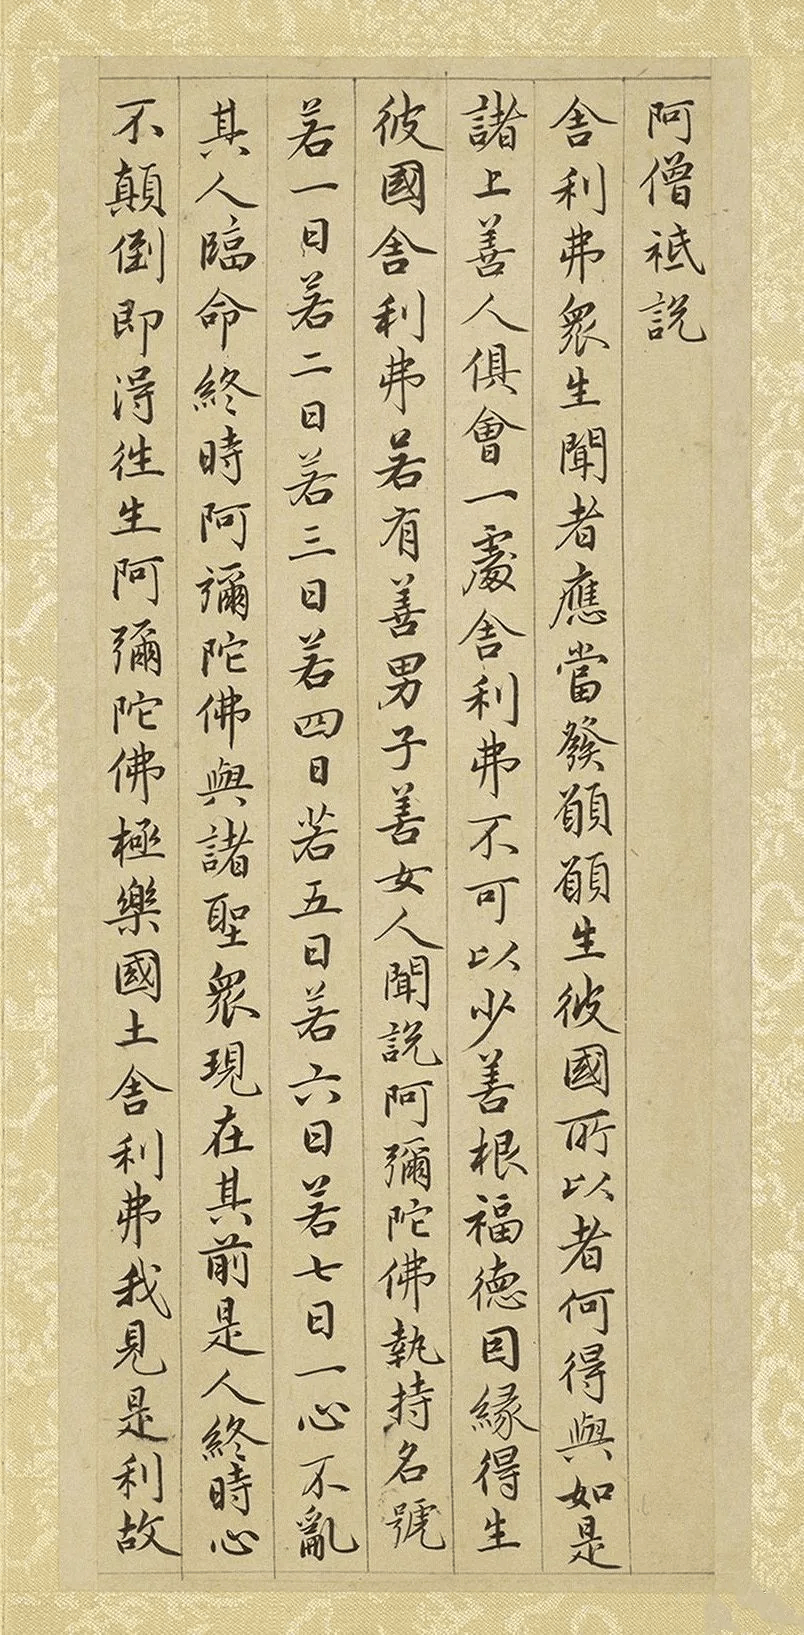 阿僧祇説
舍利弗衆生聞者應當發願願生彼國所以者何得與如是
諸上善人俱會一處舍利弗不可以少善根福德因緣得生
彼國舍利弗若有善男子善女人聞説阿彌陀佛執持名號
若一日若二日若三日若四日若五日若六日若七日一心不亂
其人臨命終時阿彌陀佛與諸聖衆現在其前是人終時心
不顛倒即得往生阿彌陀佛極樂國土舍利弗我見是利故